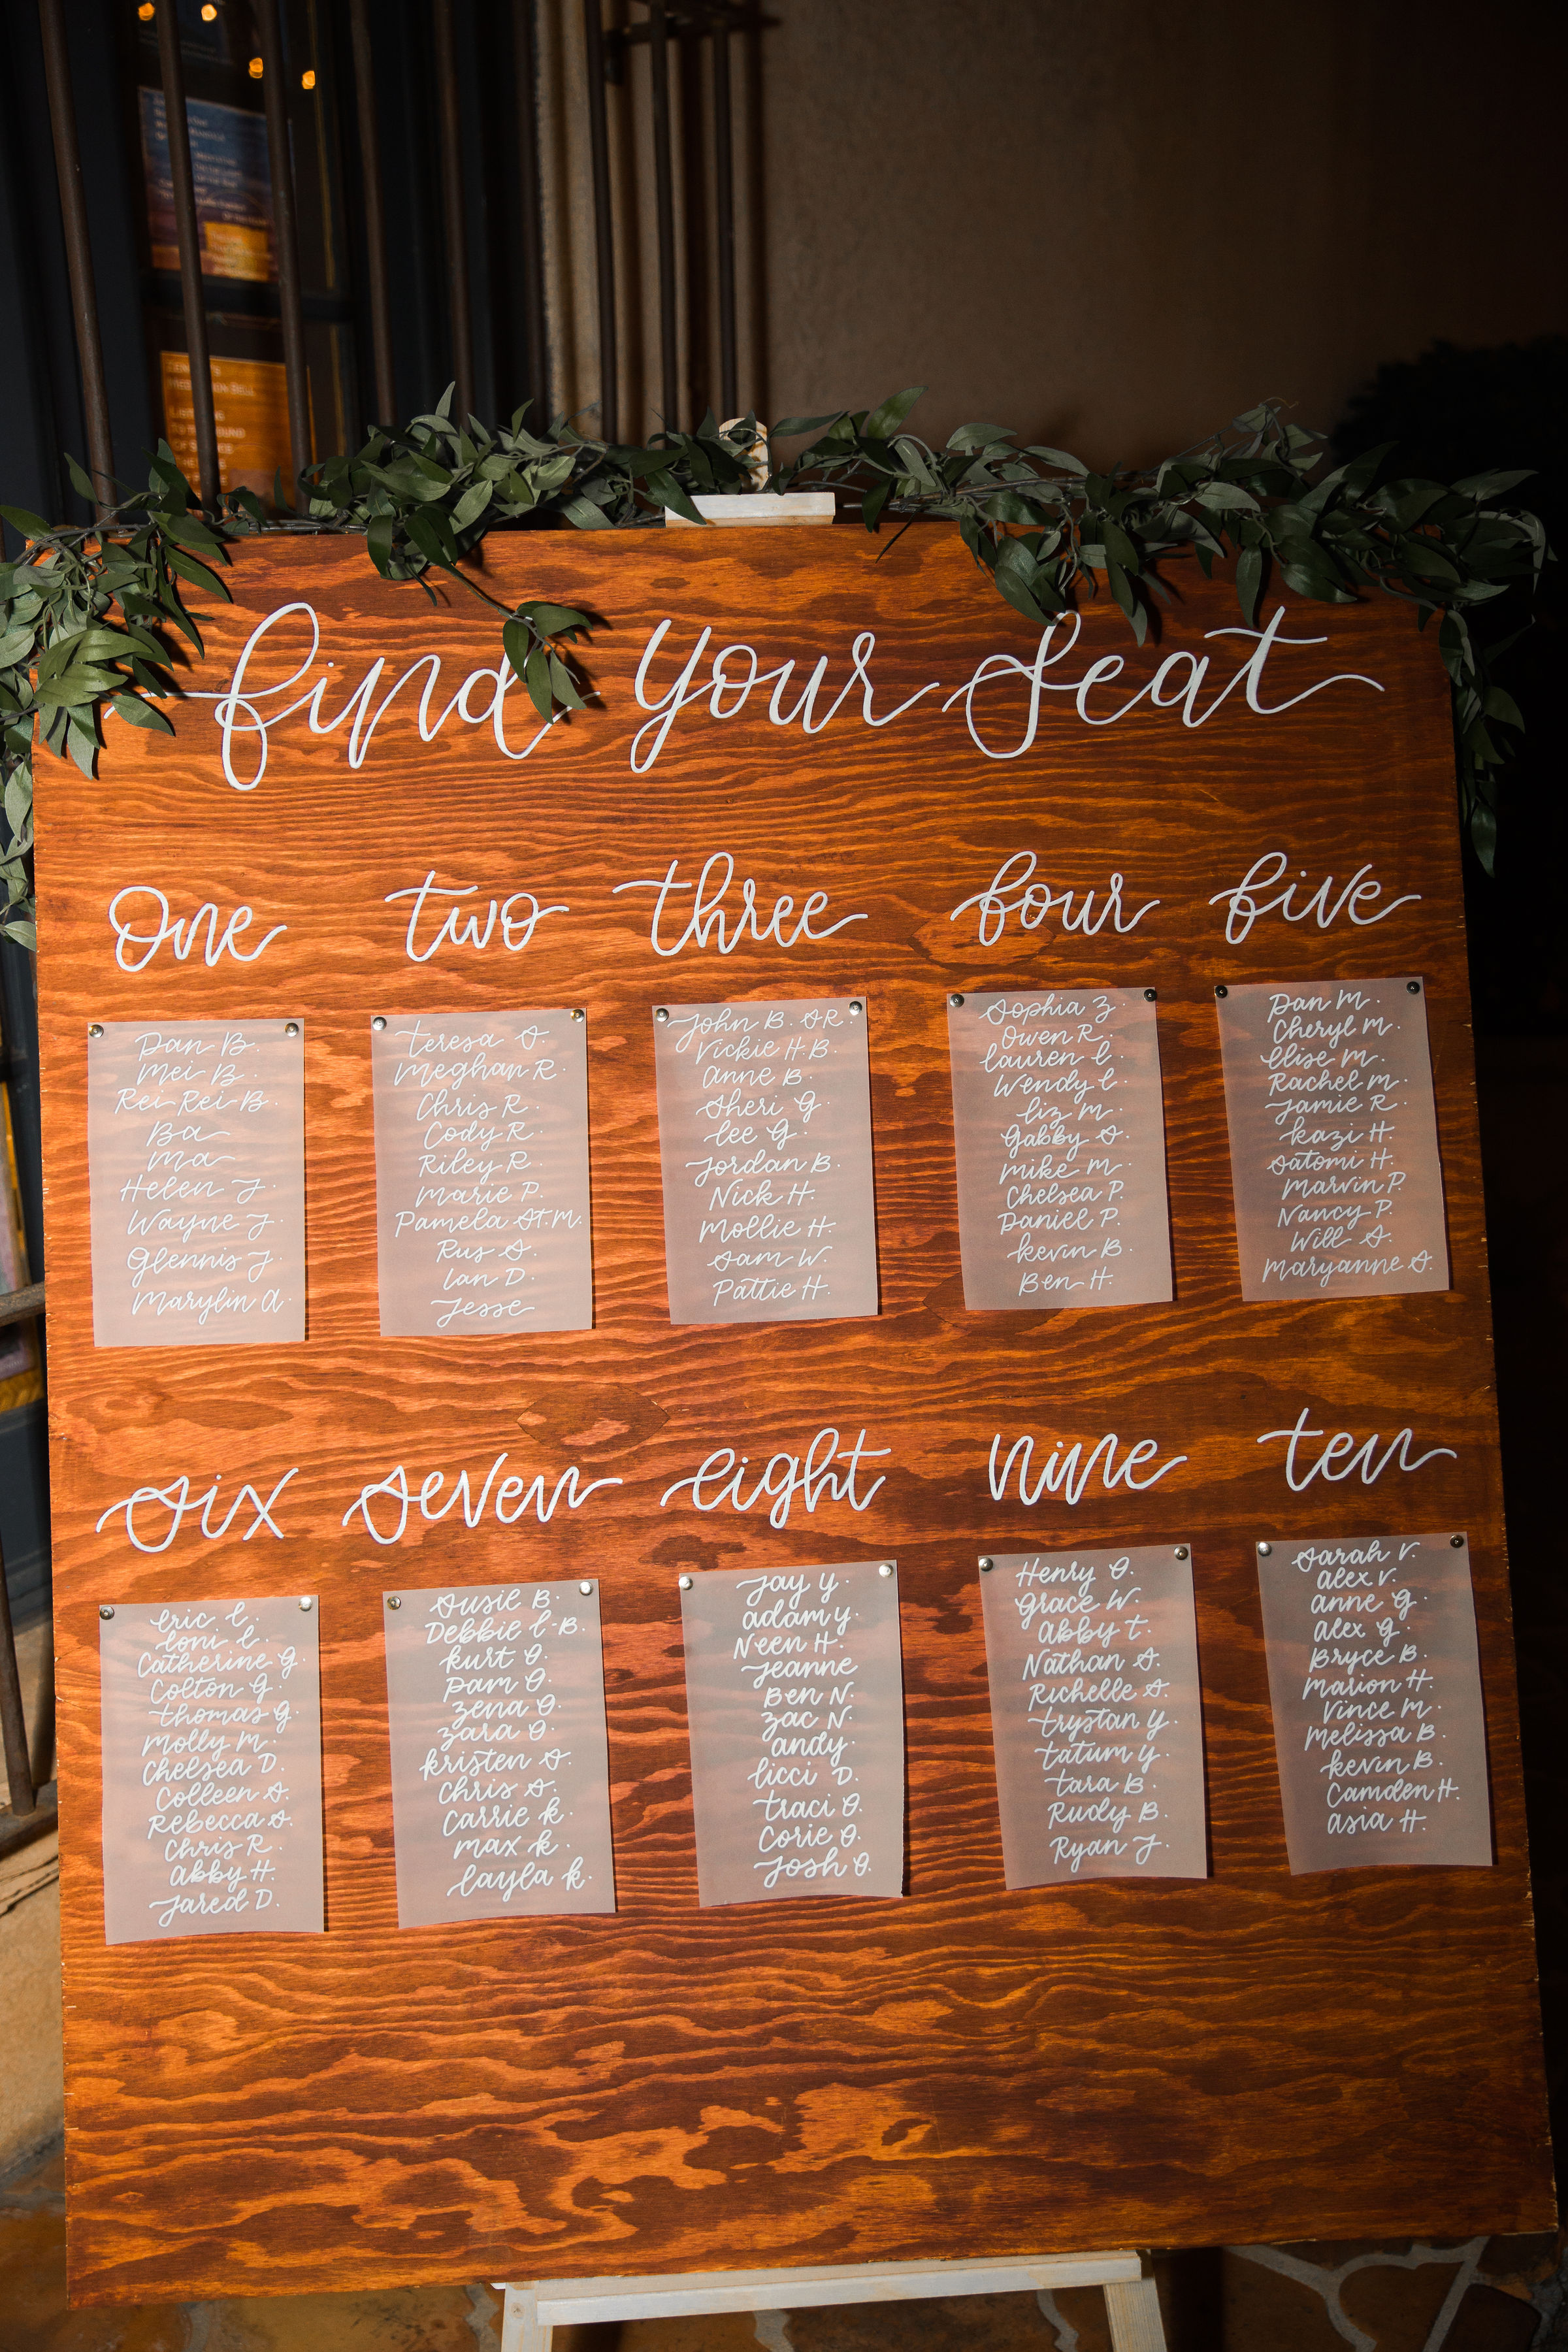 find your seat
one
Dan B.
Mei B.
Rei Rei B.
Ba
Ma
Helen J.
Wayne J.
Glennis J.
Marylin A.
two
Teresa S.
Meghan R.
Chris R.
Cody R.
Riley R.
Marie P.
Pamela St. M.
Rus S.
Ian D.
Jesse
three
John B. SR.
Vickie H.B.
Anne B.
Sheri G.
Lee G.
Jordan B.
Nick H.
Mollie H.
Sam W.
Pattie H.
four
Sophia Z
Owen R.
Lauren L.
Wendy L.
Liz M.
Gabby S.
Mike M.
Chelsea P.
Daniel P.
Kevin B.
Ben H.
five
Dan M.
Cheryl M.
Elise M.
Rachel M.
Jamie R.
Kazi H.
Satomi H.
Marvin P.
Nancy P.
Will S.
Maryanne S.
six
Eric L.
Loni L.
Catherine G.
Colton G.
Thomas G.
Molly M.
Chelsea D.
Colleen S.
Rebecca S.
Chris R.
Abby H.
Jared D.
seven
Susie B.
Debbie L-B.
Kurt O.
Pam O.
Zena O.
Zara O.
Kristen S.
Chris S.
Carrie K.
Max K.
Layla K.
eight
Jay Y.
Adam Y.
Neen H.
Jeanne
Ben N.
Zac N.
Andy.
Licci D.
Traci O.
Corie O.
Josh O.
nine
Henry O.
Grace W.
Abby T.
Nathan S.
Richelle S.
Trystan Y.
Tatum Y.
Tara B.
Rudy B.
Ryan J.
ten
Sarah V.
Alex V.
Anne G.
Alex G.
Bryce B.
Marion H.
Vince M.
Melissa B.
Kevin B.
Camden H.
Asia H.